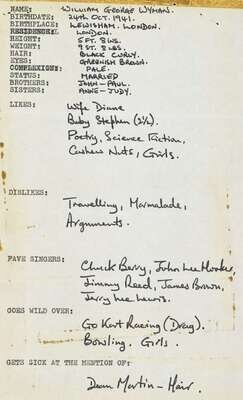 NAME: WILLIAM GEORGE WYMAN.
BIRTHDATE: 24TH OCT. 1941.
BIRTHPLACE: LEWISHAM. LONDON.
RESIDENCE: LONDON.
HEIGHT: 5FT. 8 INS.
WEIGHT: 9 ST. 8 LBS.
HAIR: BLACK CURLY.
EYES: GREENISH BROWN.
COMPLEXION: PALE.
STATUS: MARRIED
BROTHERS: JOHN - PAUL.
SISTERS: ANNE - JUDY.
LIKES: Wife Diane
Baby Stephen (2½)
Poetry, Science Fiction,
Cashew Nuts, Girls.
DISLIKES:
Travelling, Marmalade,
Arguments.
FAVE SINGERS:
Chuck Berry, John Lee Hooker,
Jimmy Reed, James Brown,
Jerry Lee Lewis.
GOES WILD OVER:
Go Kart Racing (Drag).
Bowling. Girls.
GETS SICK AT THE MENTION OF:
Dean Martin - Hair.